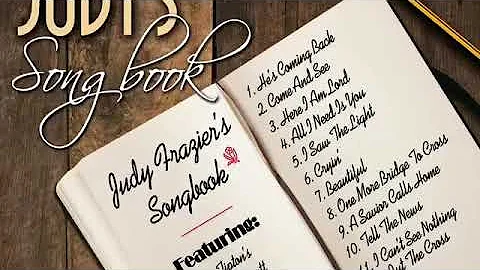 JUDY'S
Song book
Judy Frazier's
Songbook
Featuring:
1. He's Coming Back
2. Come And See
3. Here I Am Lord
4. All I Need Is You
5. I Saw The Light
6. Cryin'
7. Beautiful
8. One More Bridge To Cross
9. A Savior Calls Home
10. Tell The News
11. I Can't See Nothing
But The Cross